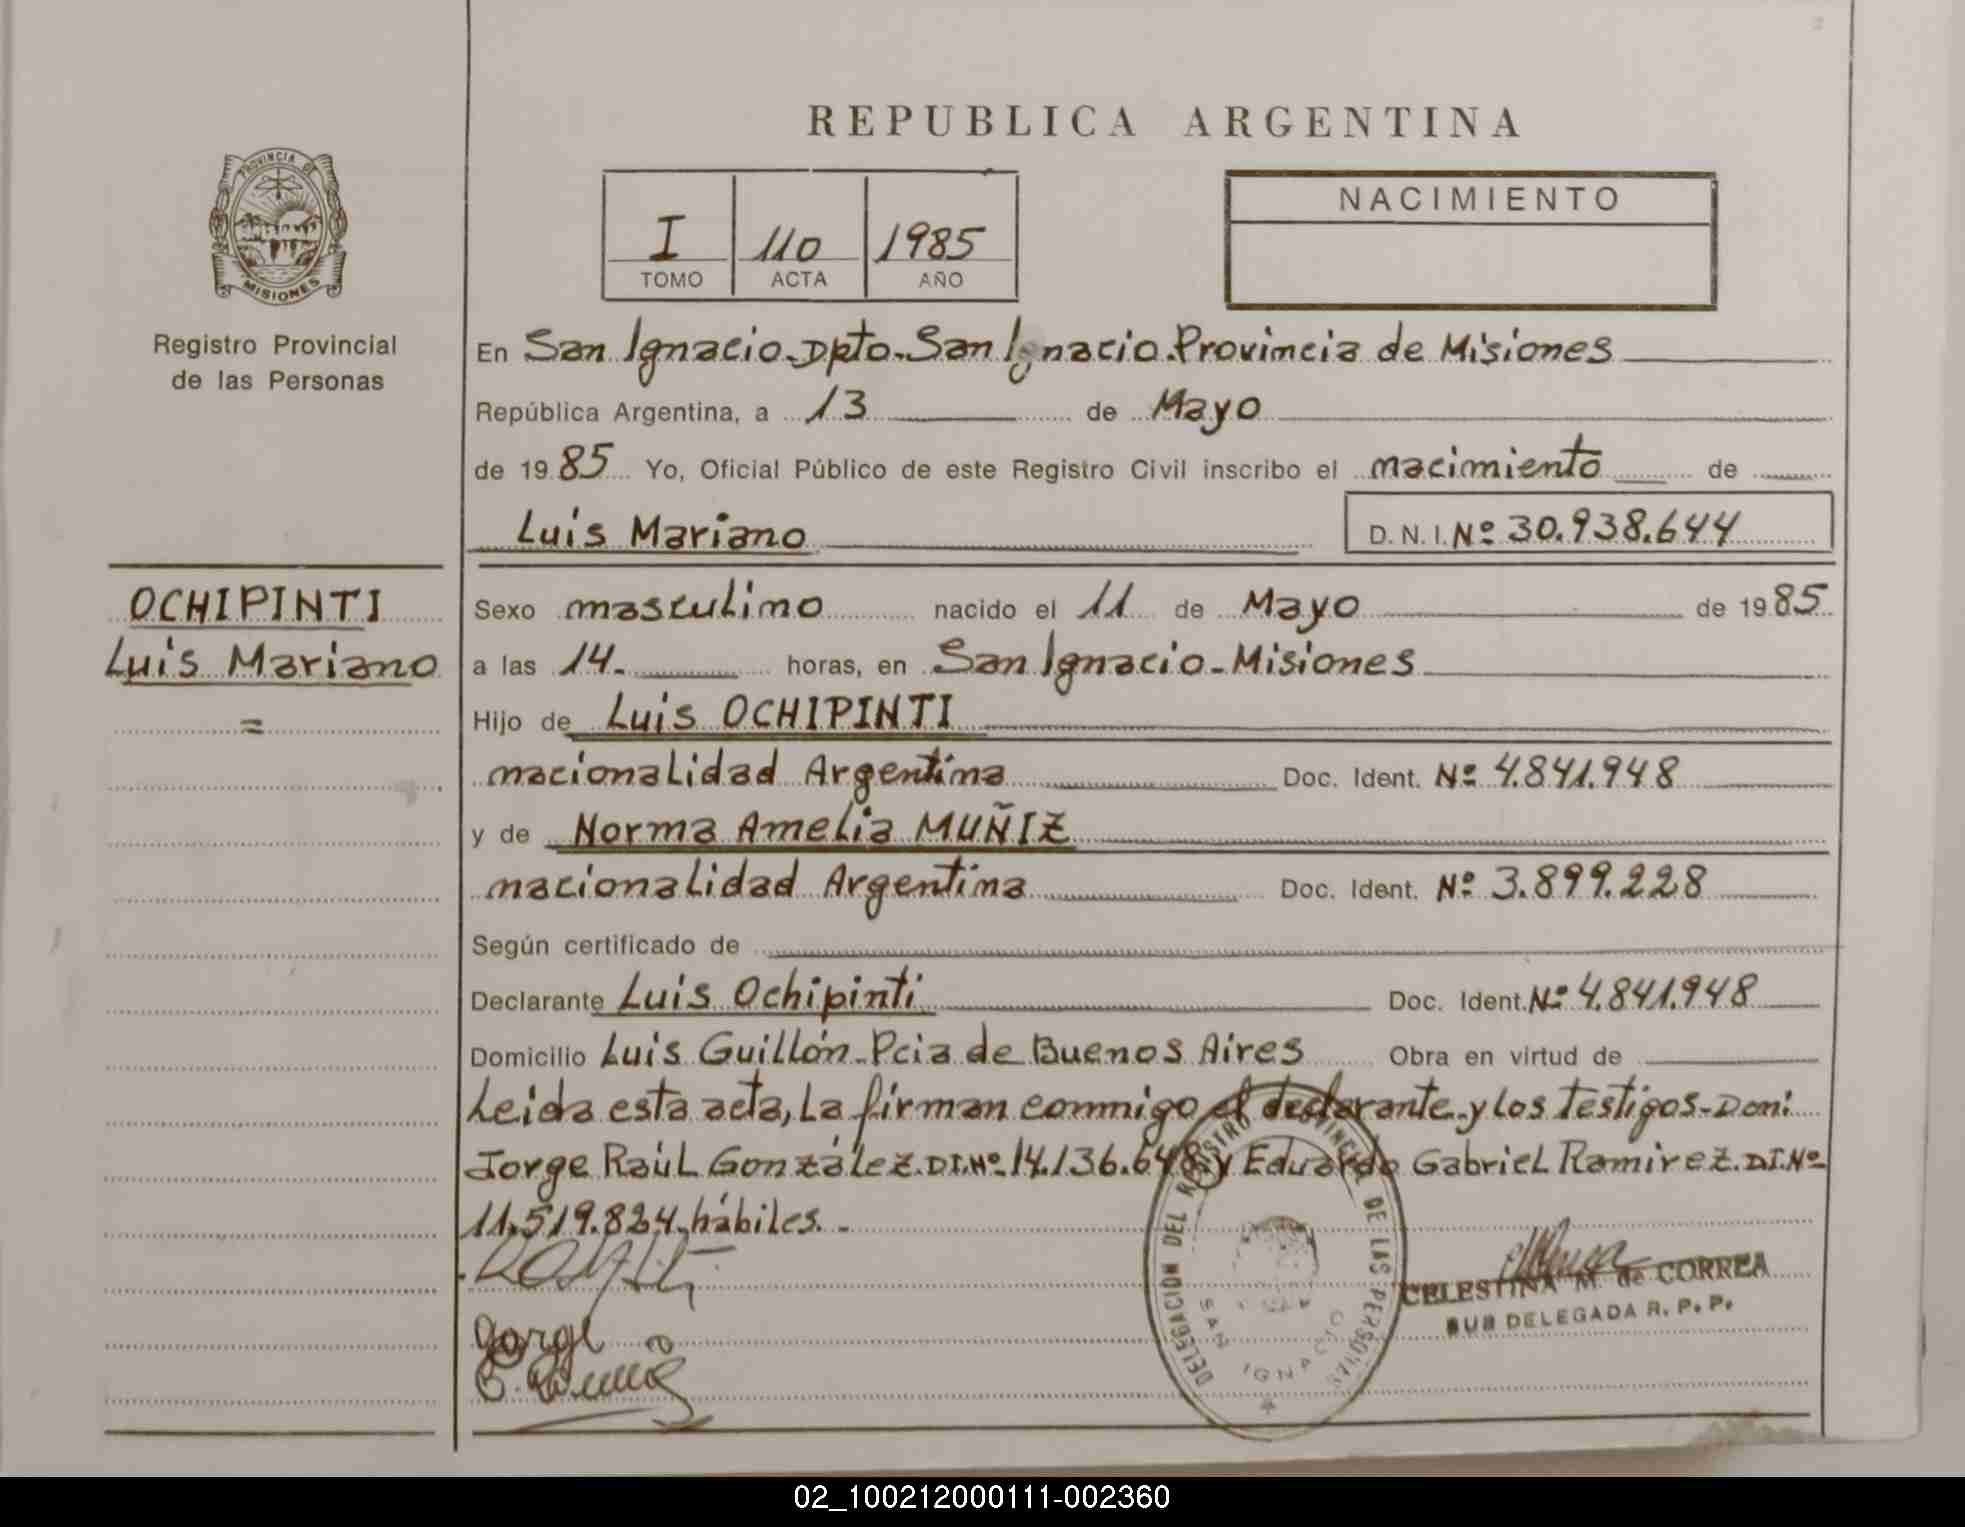 REPUBLICA ARGENTINA
PROVINCIA DE
MISIONES
Registro Provincial
de las Personas
I 110 1985
TOMO ACTA AÑO
NACIMIENTO
En San Ignacio-Dpto-San Ignacio.Provincia de Misiones
República Argentina, a 13 de Mayo
de 1985 Yo, Oficial Público de este Registro Civil inscribo el nacimiento de
Luis Mariano D.N.I. Nº 30.938.644
OCHIPINTI
Luis Mariano
=
Sexo masculino nacido el 11 de Mayo de 1985
a las 14- horas, en San Ignacio-Misiones
Hijo de Luis OCHIPINTI
nacionalidad Argentina Doc. Ident. Nº 4.841.948
y de Norma Amelia MUÑIZ
nacionalidad Argentina Doc. Ident. Nº 3.899.228
Según certificado de
Declarante Luis Ochipinti Doc. Ident. Nº 4.841.948
Domicilio Luis Guillón-Pcia de Buenos Aires Obra en virtud de
Leida esta acta, la firman conmigo el declarante y los testigos-Don:
Jorge Raúl González.DI.Nº 14.136.648 y Eduardo Gabriel Ramirez.D.I.Nº
11.519.824, hábiles.-
Jorge
DELEGACION DEL REGISTRO PROVINCIAL DE LAS PERSONAS
SAN IGNACIO
CELESTINA M. de CORREA
SUB DELEGADA R. P. P.
02_100212000111-002360